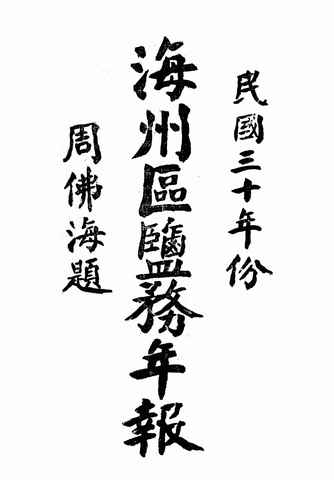 民國三十年份
海州區鹽務年報
周佛海題